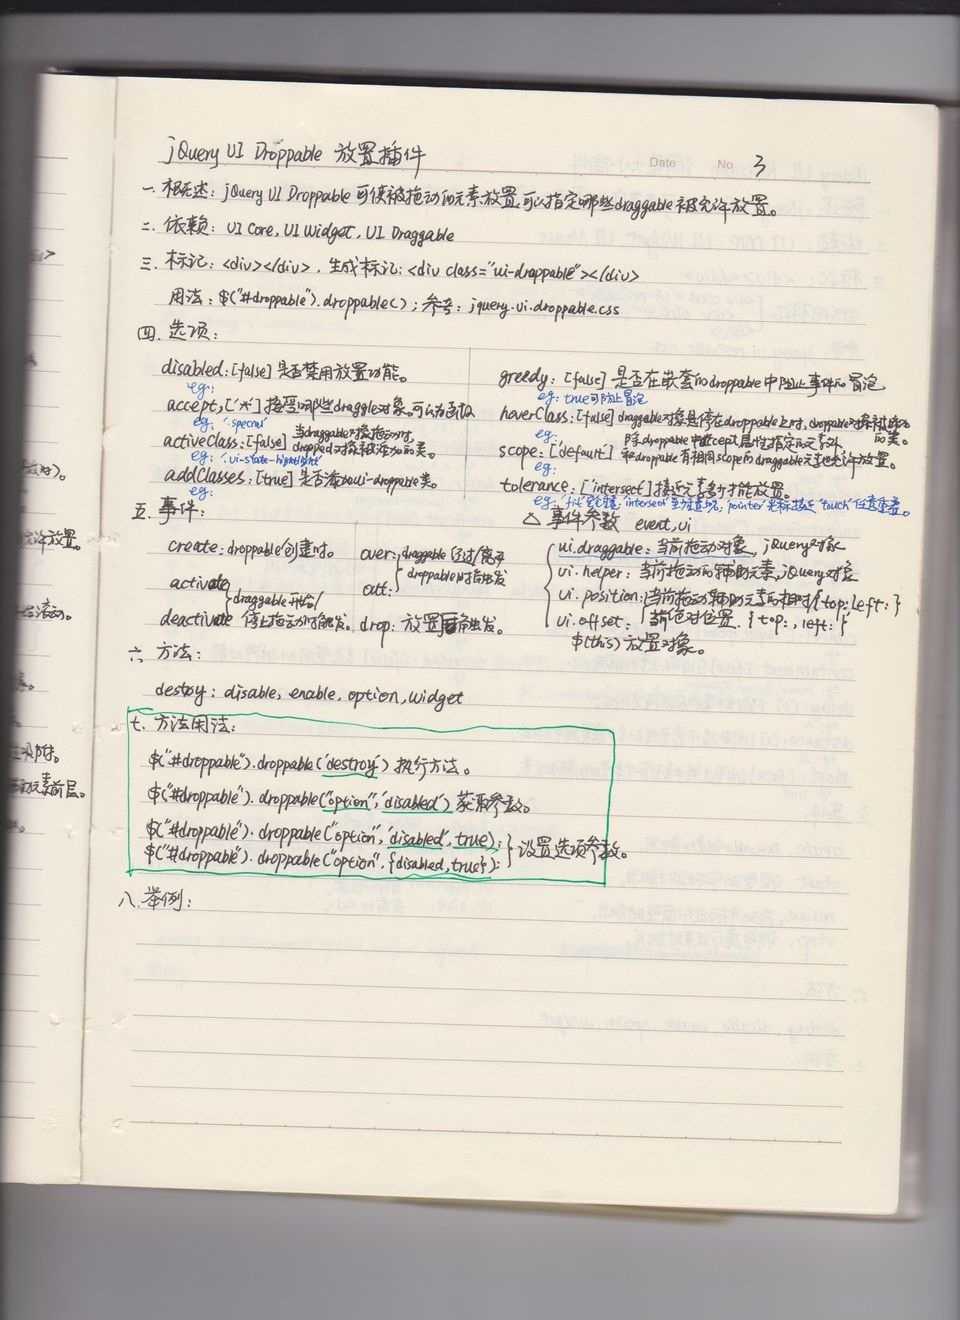 Date No 3
jQuery UI Droppable 放置插件
一.概述: jQuery UI Droppable 可使被拖动的元素放置,可以指定哪些draggable被允许放置。
二.依赖: UI Core, UI Widget, UI Draggable
三.标记: <div></div>. 生成标记: <div class="ui-droppable"></div>
用法: $("#droppable").droppable(); 参考: jquery.ui.droppable.css
四.选项:
disabled:[false]是否禁用放置功能。
eg:
accept,['*']接受哪些draggle对象。可以为函数
eg: '.special'
activeClass:[false]当draggable对象拖动时,
dropped对象被添加的类。
eg: '.ui-state-hightlight'
addClasses:[true]是否添加ui-droppable类。
eg:
greedy:[false]是否在嵌套的droppable中阻止事件的冒泡
eg: true可防止冒泡
hoverClass:[false]draggable对象悬停在droppable上时,droppable对象被添加的类。
eg:
scope:['default']除droppable中accept属性指定的元素外
和droppable有相同scope的draggable元素也允许放置。
eg:
tolerance:['intersect']接近元素多少才能放置。
eg: 'fit' 'intersect' 'pointer' 'touch' 任意重叠。
五.事件:
create: droppable创建时。
activate
deactivate
draggable开始/
停止拖动时触发。
over: draggable经过/离开
out: droppable时触发
drop: 放置后触发。
△ 事件参数 event,ui
ui.draggable: 当前拖动对象, jQuery对象
ui.helper: 当前拖动的辅助元素,jQuery对象
ui.position: 当前拖动辅助元素的相对{top:left:}
ui.offset: 绝对位置. {top:,left:}
$(this) 放置对象。
六 方法:
destroy: disable, enable, option, widget
七.方法用法:
$("#droppable").droppable('destroy') 执行方法。
$("#droppable").droppable("option",'disabled') 获取参数。
$("#droppable").droppable("option",'disabled',true);
$("#droppable").droppable("option",{disabled,true});
设置选项参数。
八.举例:
允许放置。
元素前层。